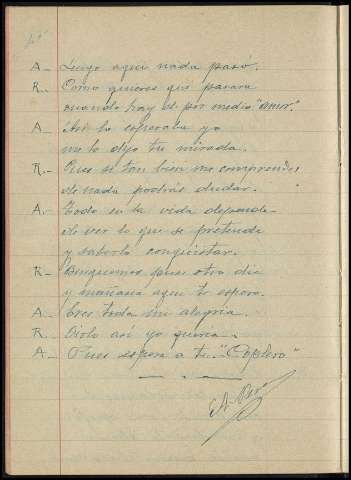 A_ Luego aquí nada pasó.
R_ Como quieres que pasara
cuando hay de por medio "amor".
A_ Así lo esperaba yo
me lo dijo tu mirada.
R_ Pues si tan bien me comprendes
de nada podrás dudar.
A_ Todo en la vida depende
de ver lo que se pretende
y saberlo conquistar.
R_ pues otro día
y mañana aquí te espero.
A_ Eres toda mi alegría.
R_ Oirlo así yo quería.
A_ Pues espera a tu "Coplero"